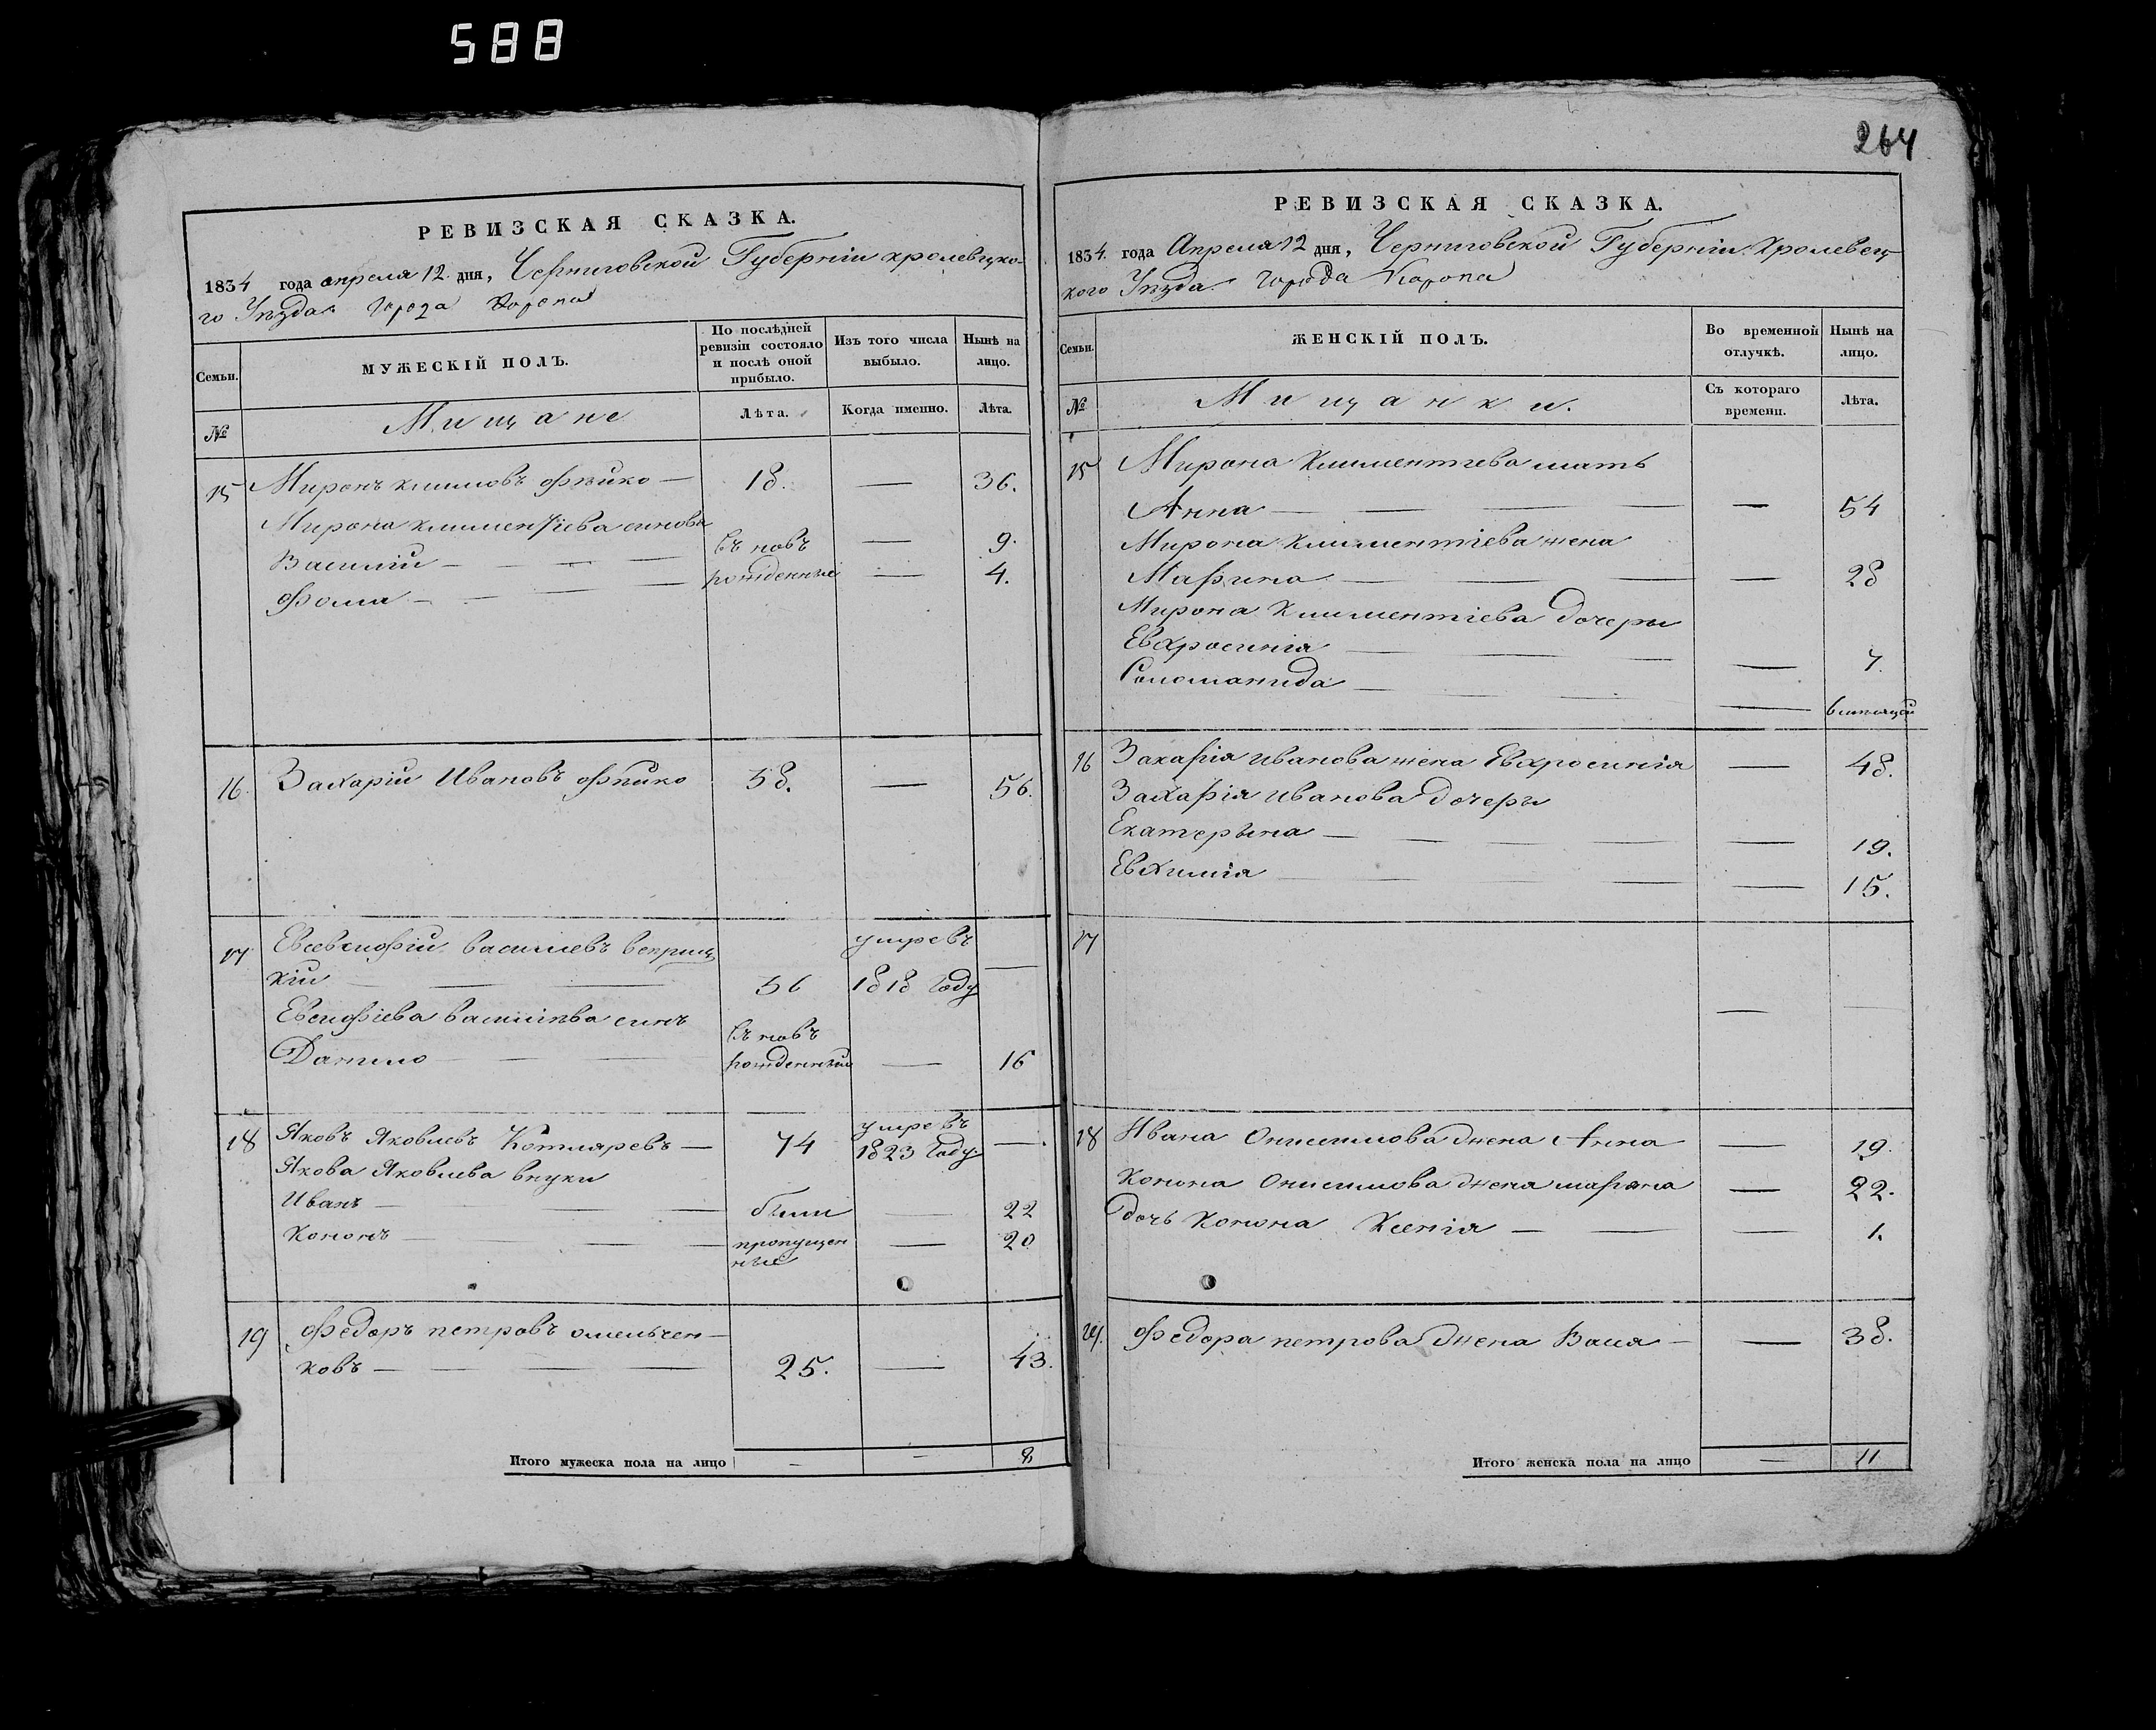 588
264
РЕВИЗСКАЯ СКАЗКА.
1834 года апреля 12 дня, Черниговской Губерніи кролевецко-
го Уѣзда Города Коропа
Семьи.
МУЖЕСКІЙ ПОЛЪ.
По послѣдней ревизіи состояло и послѣ оной прибыло.
Изъ того числа выбыло.
Нынѣ на лицо.
№
Мищане
Лѣта.
Когда именно.
Лѣта.
15 Миронъ климовъ — 18. — 36.
Мирона климентіева синови
Василій — въ новъ — 9.
Фома — рожденные — 4.
16. Захарій Ивановъ 38. — 56.
17 василіевъ
кій — 36 умревъ 1818 Году —
василіева синъ
Данило — въ новъ рожденный — 16
18 Яковъ Яковлевъ Котляревъ — 74 умревъ 1823 Году —.
Якова Яковлева внуки
Иванъ — были — 22
Кононъ — пропущен — 20
ные
19 Федоръ петровъ омельчен-
ковъ — 25. — 43.
Итого мужеска пола на лицо — — 8
РЕВИЗСКАЯ СКАЗКА.
1834. года Апреля 12 дня, Черниговской Губерніи Кролевец-
кого Уѣзда Города Коропа
Семьи.
ЖЕНСКІЙ ПОЛЪ.
Во временной отлучкѣ.
Нынѣ на лицо.
№
Мищанки.
Съ котораго времени.
Лѣта.
15 Мирона Климентіева мать
Анна — — 54
Мирона Климентіева жена
Марина — — 28
Мирона Климентіева дочери
Евфросинія — — 7.
Соломанида — —
16 Захарія Иванова жена Евфросинія — 48.
Захарія Иванова дочери
Екатерына — — 19.
Евфимія — — 15.
17 — —
18 Ивана Онисимова жена Анна — 19.
Конона Онисимова жена маряна — 22.
дочь Конона Ксенія — — 1.
19. Федора петрова жена Васа — — 38.
Итого женска пола на лицо — 11